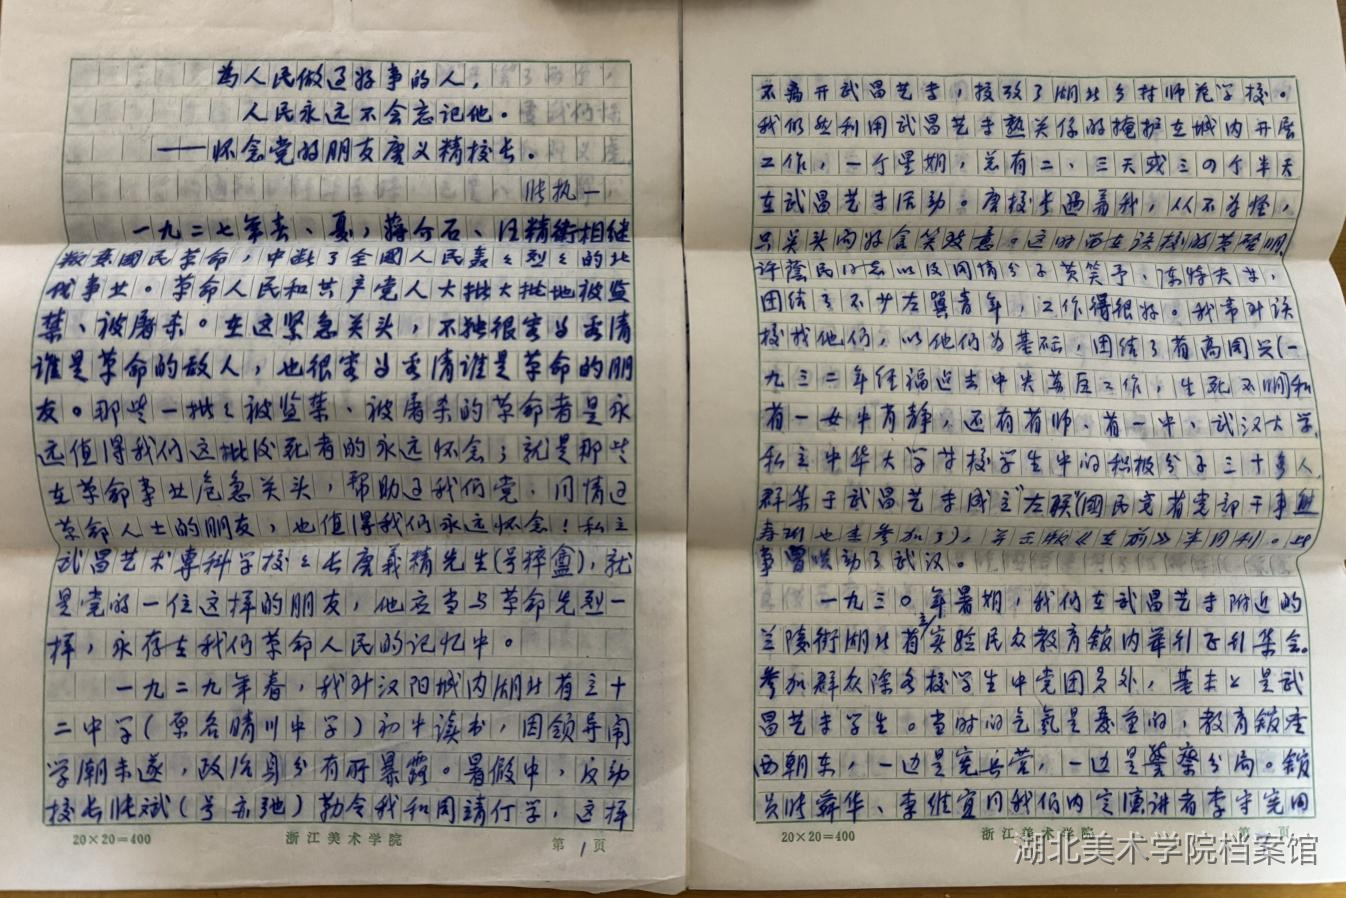 为人民做过好事的人，
人民永远不会忘记他。
——怀念党的朋友唐义精校长。
张执一
一九二七年春、夏，蒋介石、汪精卫相继
叛变國民革命，中断了全國人民轰轰烈烈的北
伐事业。革命人民和共产党人大批大批地被监
禁、被屠杀。在这紧急关头，不独很容易看清
谁是革命的敌人，也很容易看清谁是革命的朋
友。那些一批批被监禁、被屠杀的革命者是永
远值得我们这批后死者的永远怀念；就是那些
在革命事业危急关头，帮助过我们党、同情过
革命人士的朋友，也值得我们永远怀念！私立
武昌艺术専科学校校长唐義精先生(号粹盦)，就
是党的一位这样的朋友，他应当与革命先烈一
样，永存在我们革命人民的记忆中。
一九二九年春，我到汉阳城内湖北省立十
二中学(原名晴川中学)初中读书，因领导闹
学潮未遂，政治身分有所暴露。暑假中，反动
校长张斌(号亦弛)勒令我和周靖仃学，这样
20×20=400
浙江美术学院
第1页
不离开武昌艺专，投考了湖北乡村师范学校。
我仍然利用武昌艺专熟关係的掩护在城内开展
工作，一个星期，总有二、三天或三四个半天
在武昌艺专活动。唐校长遇着我，从不为怪，
只是头向好含笑致意。这时再在该校的黄坚明、
许蔭民同志以及同情分子黄笑予、陈特夫等，
团结了不少左翼青年，工作得很好。我常到该
校找他们，以他们为基础，团结了省高周兴(一
九三二年经福建去中央苏区工作，生死不明)和
省一女中肖静，还有省师、省一中、武汉大学、
私立中华大学等校学生中的积极分子三十多人
群集于武昌艺专成立“左联”(國民党省党部干事
也来参加了)，并出版《左前》半月刊。此
事曾哄动了武汉。
一九三〇年暑期，我们在武昌艺专附近的
兰陵街湖北省立实验民众教育馆内举行过刊集会。
参加群众除各校学生中党团员外，基本上是武
昌艺专学生。当时的气氛是严重的，教育馆座
西朝东，一边是宪兵营，一边是警察分局。馆
员张舞华、李继宜同我们内定演讲者李守宪同
20×20=400
浙江美术学院
第2页
湖北美术学院档案馆